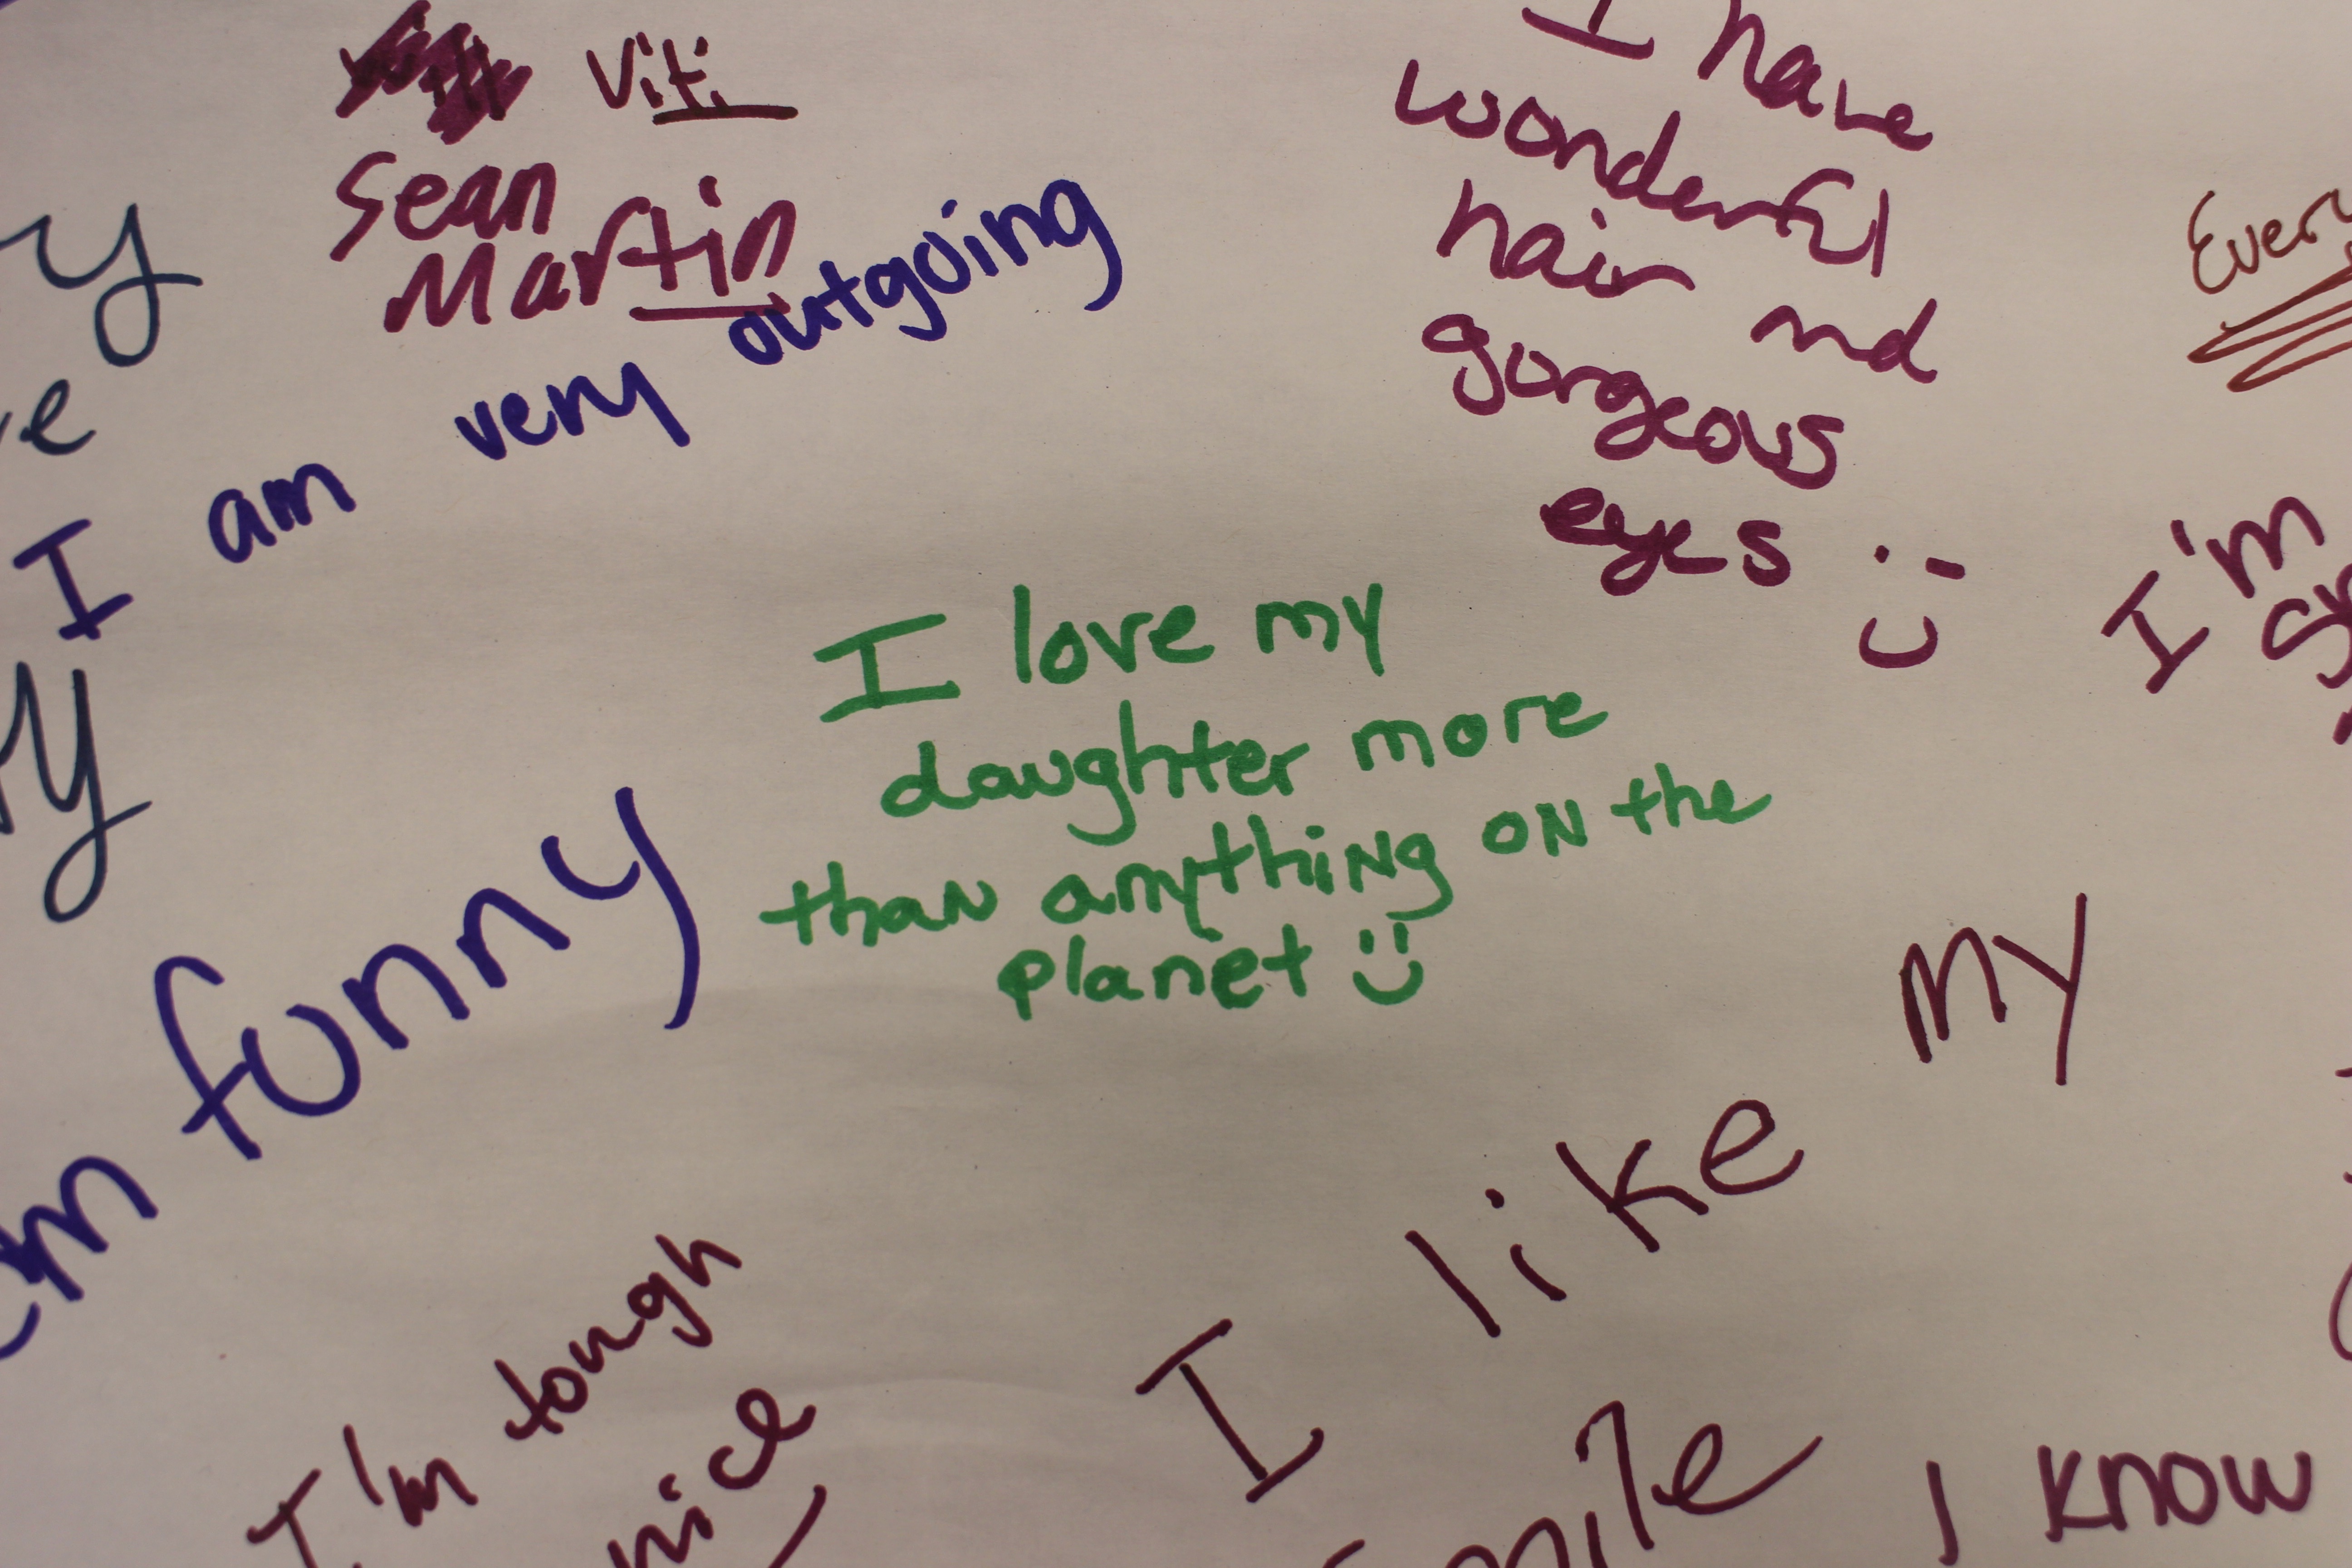 Viti
Sean
Martin
I am very outgoing
I have
wonderful
hair nd
gorgeous
eyes :-)
Every
I'm
I love my
daughter more
than anything on the
planet :)
funny
I like my
smile
I'm tough
nice
I know